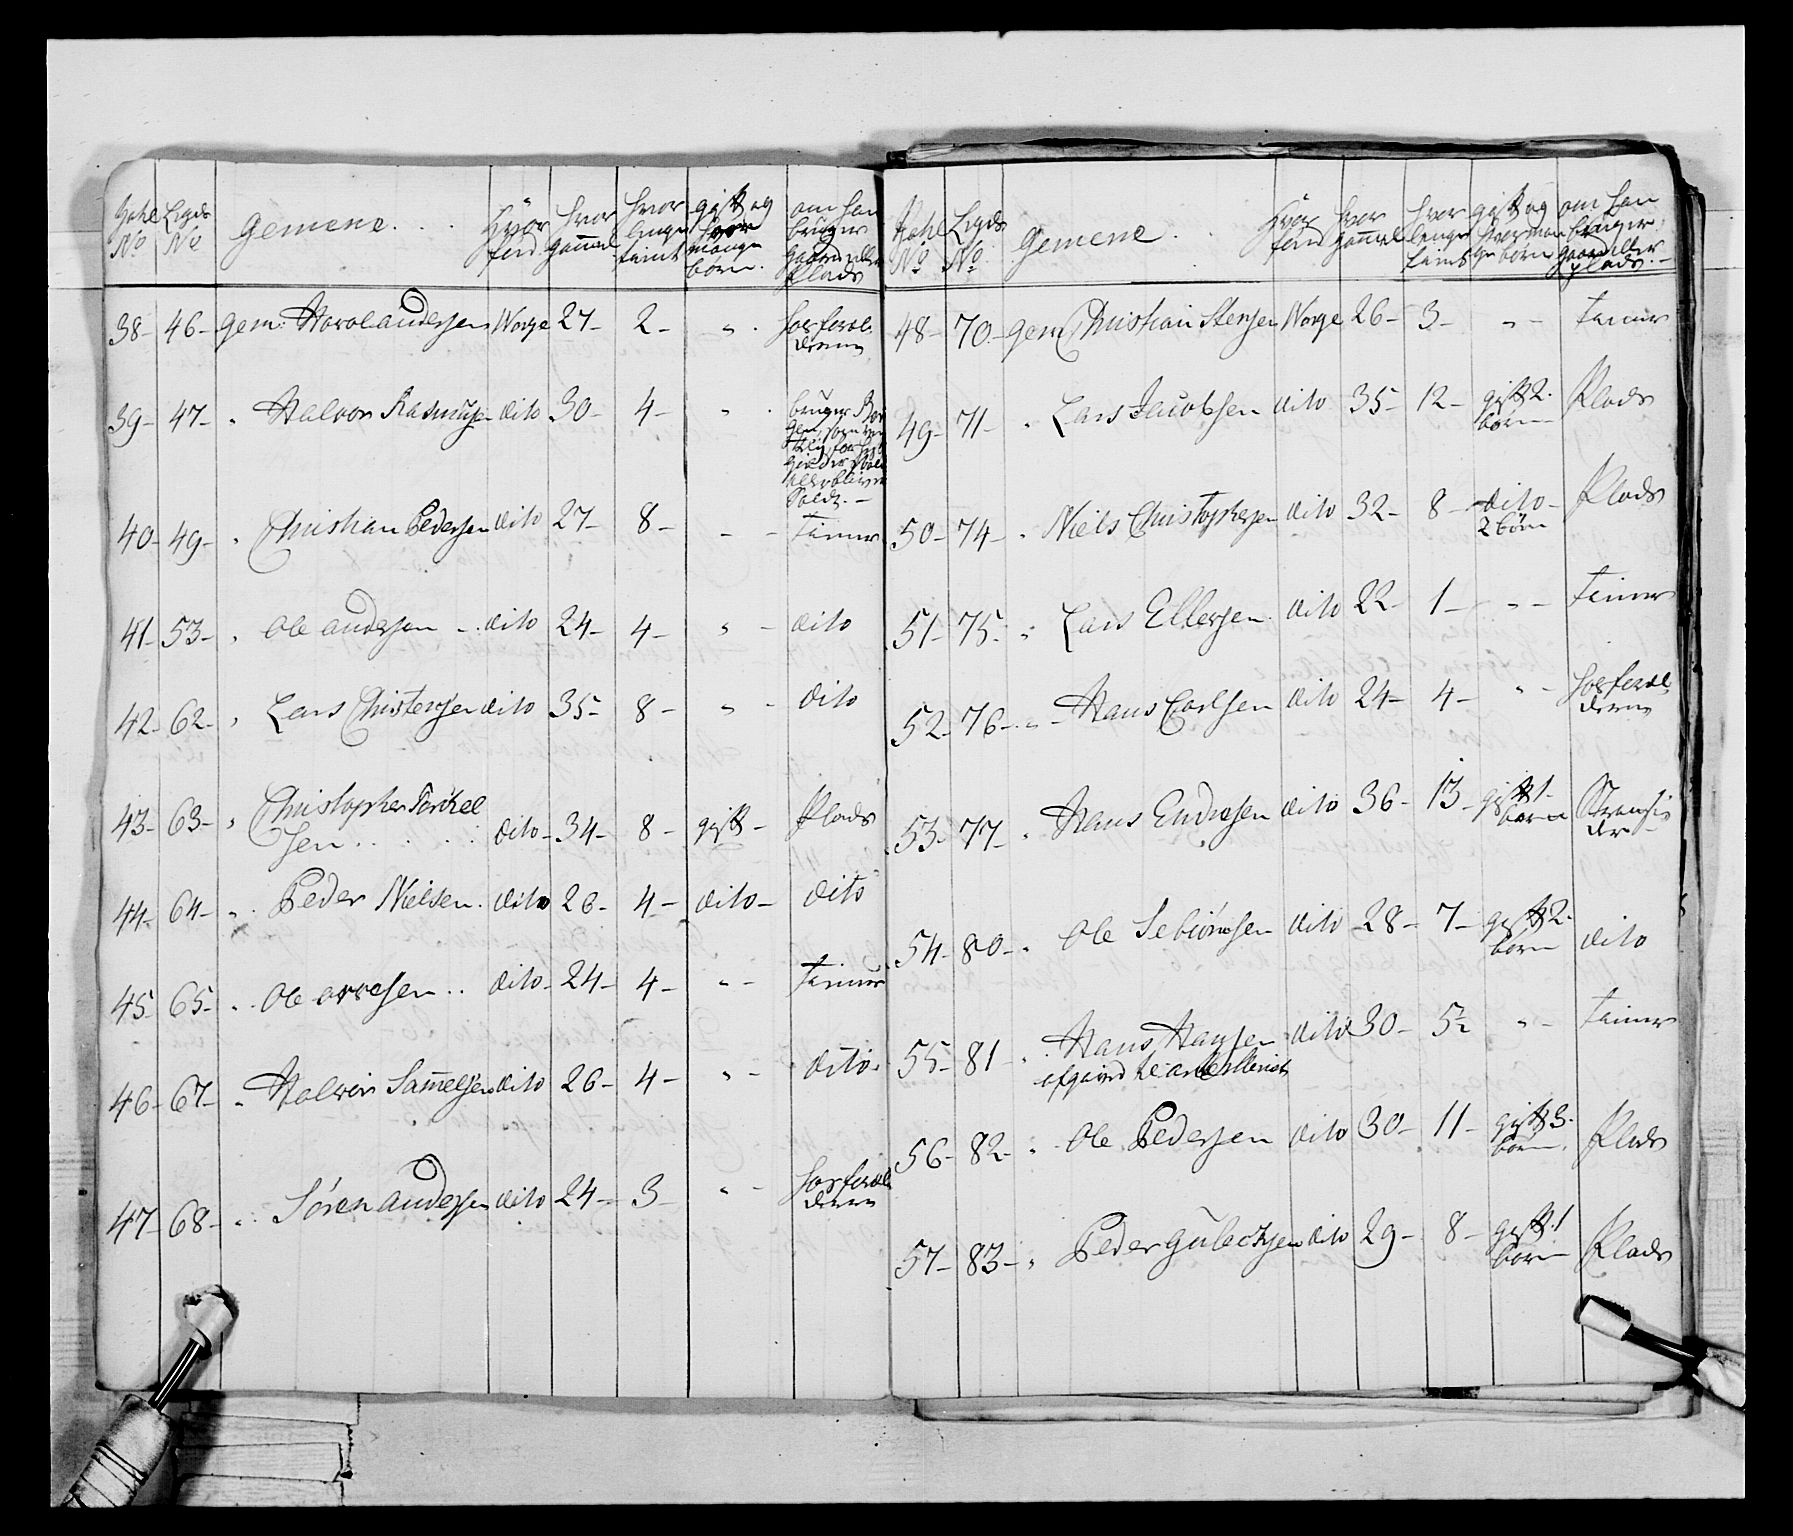 No Legds No Gemene . . . Hvor fød hvor gammel hvor lenge tient gift og hvor mange børn. om han bruger gaard eller Plads
38- 46- gem: Harol andersen Norge 27- 2- " . hos foræl
derne
39- 47- " Halvor Rasmusen dito 30- 4- " . bruger
som
Soldt. -
40- 49- " Christian Pedersen dito 27- 8- - - tiener
41- 53- " Ole andersen - . dito 24- 4- " - dito
42- 62- " Lars Christensen dito 35- 8- " - dito
43- 63- " Christopher Torckel
sen . . . . dito- 34- 8- gift- Plads
44- 64- " Peder Nielsen . dito 26- 4- dito- dito
45- 65- " Ole arvesen . . dito- 24- 4- " - tiener
46- 67- " Halvor Samelsen dito 26- 4- " - dito.
47- 68- " Søren andersen dito 24- 3- " - hos foræl
derne
No Legds No Gemene . . Hvor fød hvor gammel hvor lenge tient gift og hvor mange børn om han bruger gaard eller plads. -
48- 70- gem Christian Stensen Norge 26- 3- " - tiener
49- 71- " Lars Jacobsen dito 35- 12- gift 2.
børn Plads
50- 74- " Niels Christophersen dito 32- 8- dito-
2 børn Plads
51- 75- " Lars Ellersen. dito 22- 1- " - tiener
52- 76- " - Hans Carlsen dito 24- 4- " - hos foræl
derne
53- 77- " Hans Endresen dito 36- 13- gift 1-
barn Strandsi
der
54- 80- " Ole Sebiørnsen dito 28- 7- gift 2-
børn dito
55- 81- " Hans Hansen dito 30- 5½ " - tiener
afgaaed
56- 82- " Ole Pedersen dito 30- 11- gift 3-
børn. Plads
57- 83- " Peder Gulbechsen dito 29- 8- gift. 1
barn Plads